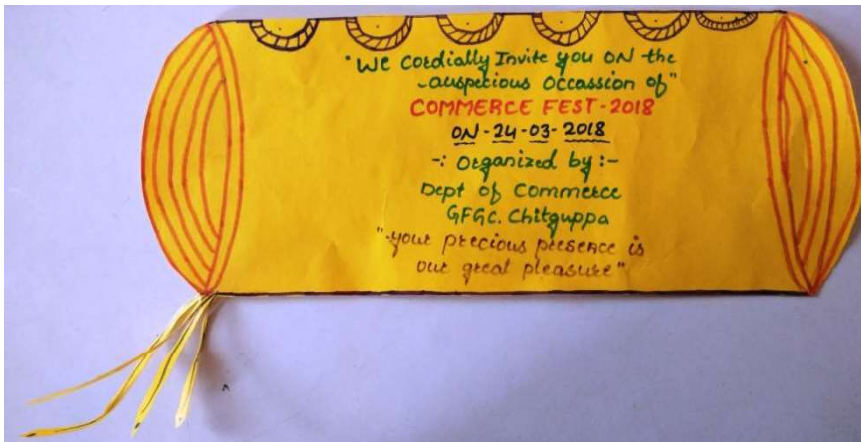 "We Cordially Invite you ON the
auspecious Occassion of"
COMMERCE FEST-2018
ON-24-03-2018
-: Organized by :-
Dept of Commerce
GFGC. Chitguppa
"your precious presence is
our great pleasure"